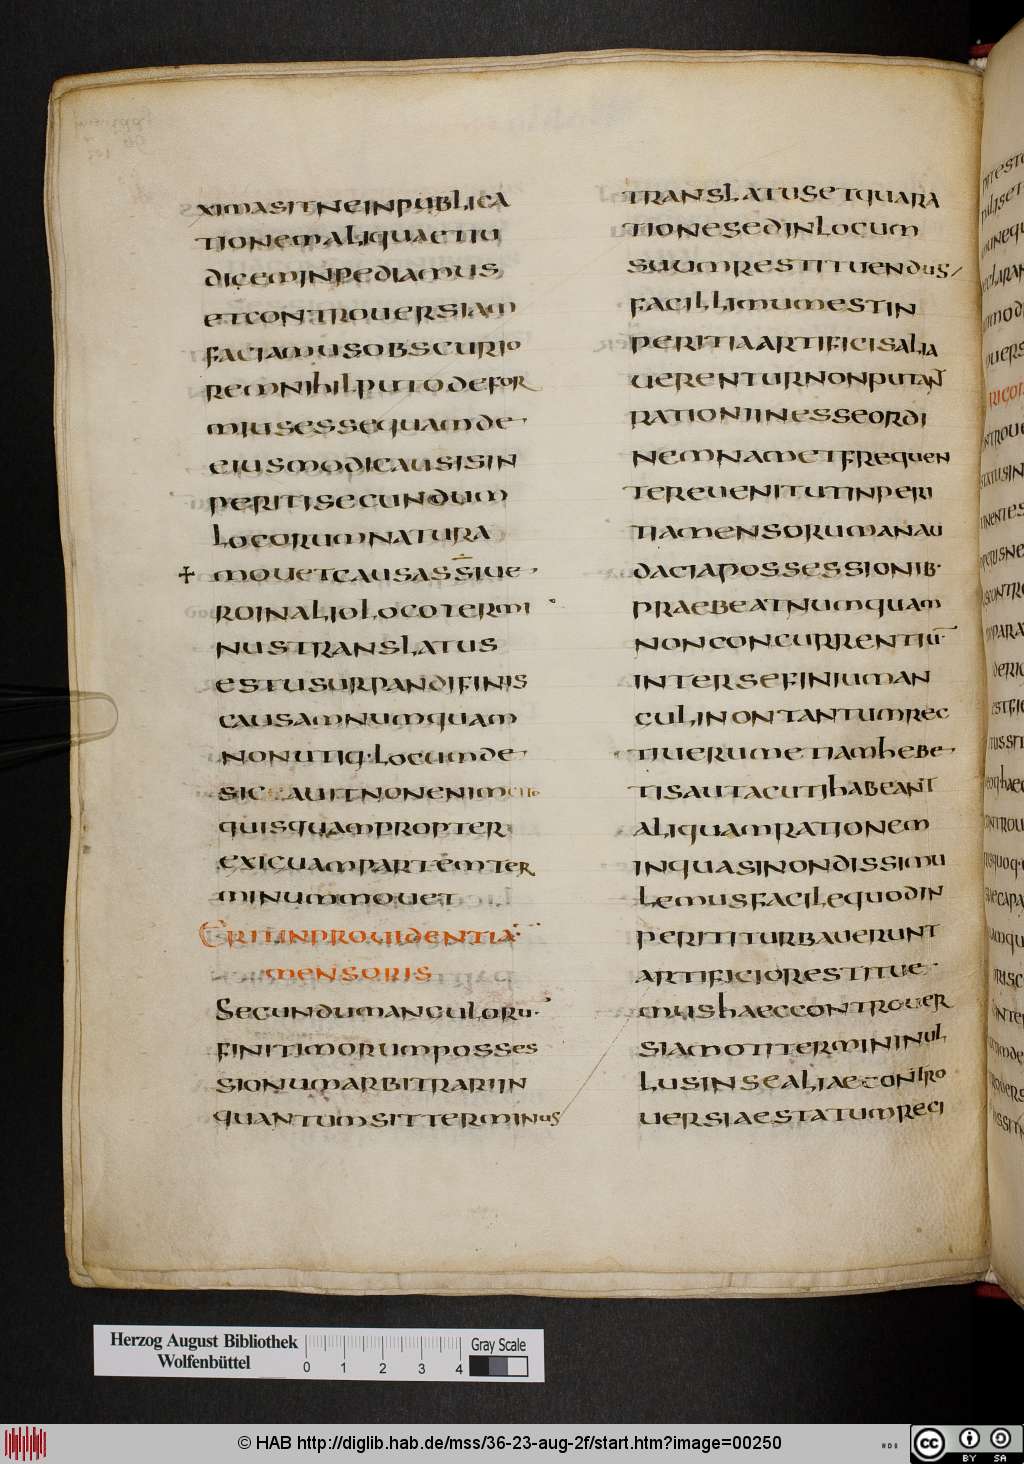 XIMASITNEINPUBLICA
TIONEMALIQUAETIU
DICEMINPEDIAMUS
ETCONTROUERSIAM
FACIAMUSOBSCURIO
REMNIHILPUTODEFOR
MIUSESSEQUAMDE
EIUSMODICAUSISIN
PERITISECUNDUM
LOCORUMNATURA
MOUETCAUSASSIUE
ROINALIOLOCOTERMI
NUSTRANSLATUS
ESTUSURPANDIFINIS
CAUSAMNUMQUAM
NONUTIQ·LOCUMDE
QUISQUAMPROPTER
EXIGUAMPARTEMTER
MINUMMOUET
ERITINPROUIDENTIA
MENSORIS
SECUNDUMANGULORU·
FINITIMORUMPOSSES
SIONUMARBITRARIIN
QUANTUMSITTERMINUS
TRANSLATUSETQUARA
TIONESEDINLOCUM
SUUMRESTITUENDUS
FACILLIMUMESTIN
PERITIAARTIFICISALIA
UERENTURNONPUTAND
RATIONIINESSEORDI
NEMNAMETFREQUEN
TEREUENITUTINPERI
TIAMENSORUMANAU
DACIAPOSSESSIONIB·
PRAEBEATNUMQUAM
NONCONCURRENTIU·
INTERSEFINIUMAN
GULINONTANTUMREC
TIUERUMETIAMHEBE
TISAUTACUTIHABEANT
ALIQUAMRATIONEM
INQUASINONDISSIMU
LEMUSFACILEQUODIN
PERITITURBAUERUNT
ARTIFICIORESTITUE
MUSHAECCONTROUER
SIAMOTITERMININUL
LUSINSEALIAECONTRO
UERSIAESTATUMRECI
Herzog August Bibliothek
Wolfenbüttel
0 1 2 3 4
Gray Scale
© HAB http://diglib.hab.de/mss/36-23-aug-2f/start.htm?image=00250
cc BY SA